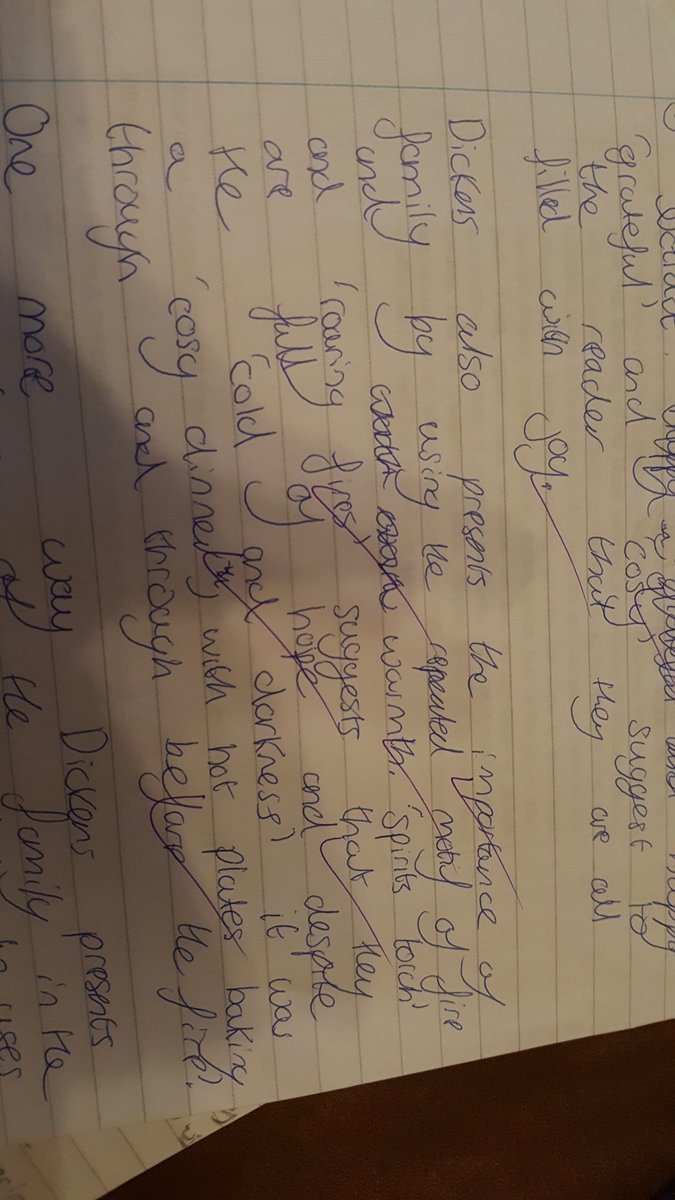 'grateful' and cosy, suggest to
the reader that they are all
filled with joy.
Dickens also presents the importance of
family by using the repeated motif of fire
and warmth. 'Spirits torch'
and 'roaring fires' suggests that they
are full of hope and despite
the 'cold and darkness' it was
a 'cosy dinner with hot plates baking
through and through before the fire'.
Dickens presents
One more way of the family in the